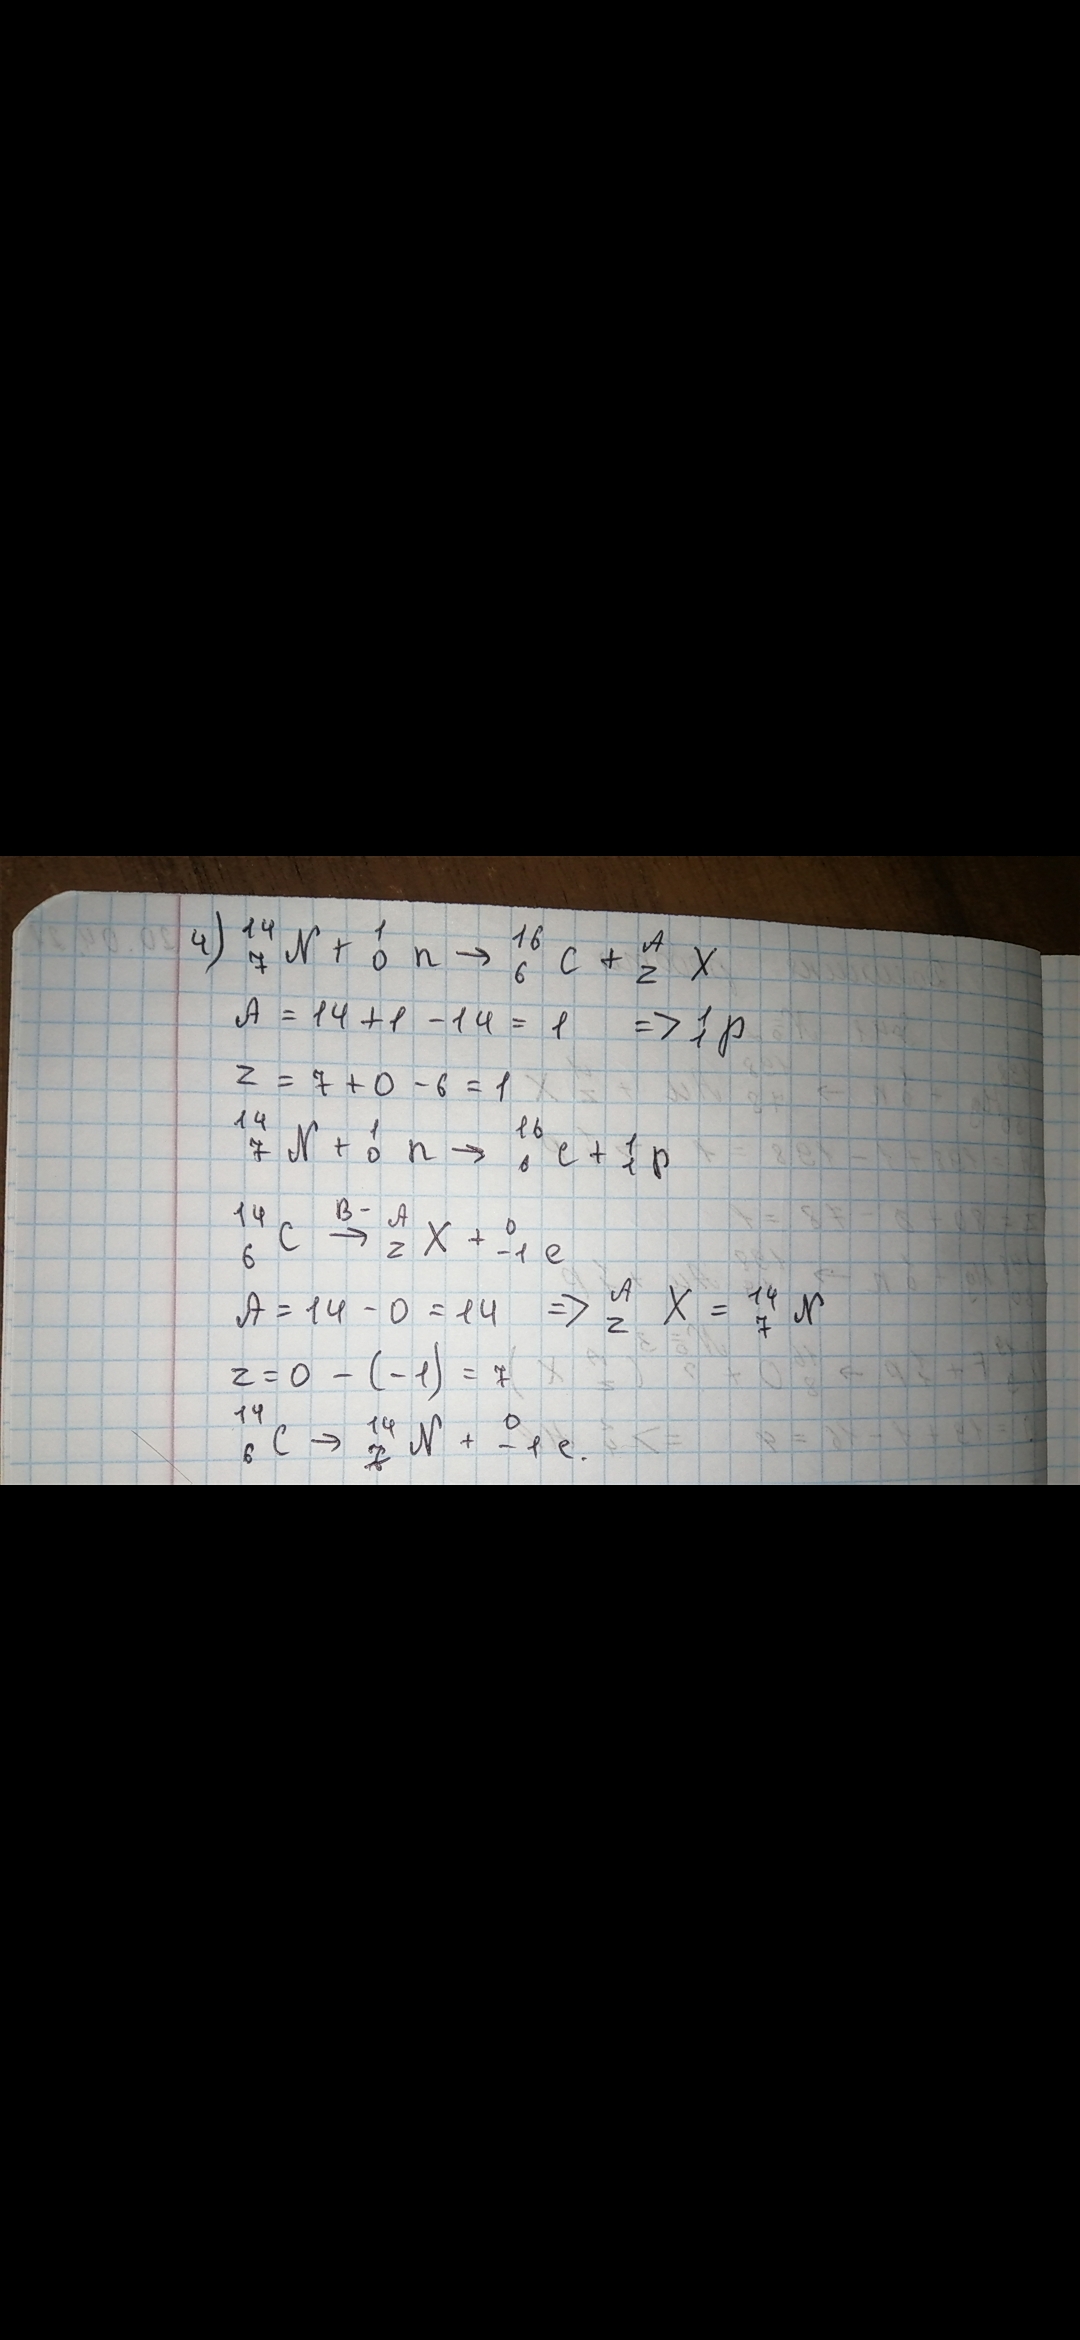 4) ¹⁴₇N + ¹₀n → ¹⁶₆C + ᴬ_zX
A = 14 + 1 - 14 = 1 => ¹₁p
z = 7 + 0 - 6 = 1
¹⁴₇N + ¹₀n → ¹⁶₆C + ¹₁p
¹⁴₆C →(B-) ᴬ_zX + ⁰₋₁e
A = 14 - 0 = 14 => ᴬ_zX = ¹⁴₇N
z = 0 - (-1) = 7
¹⁴₆C → ¹⁴₇N + ⁰₋₁e.